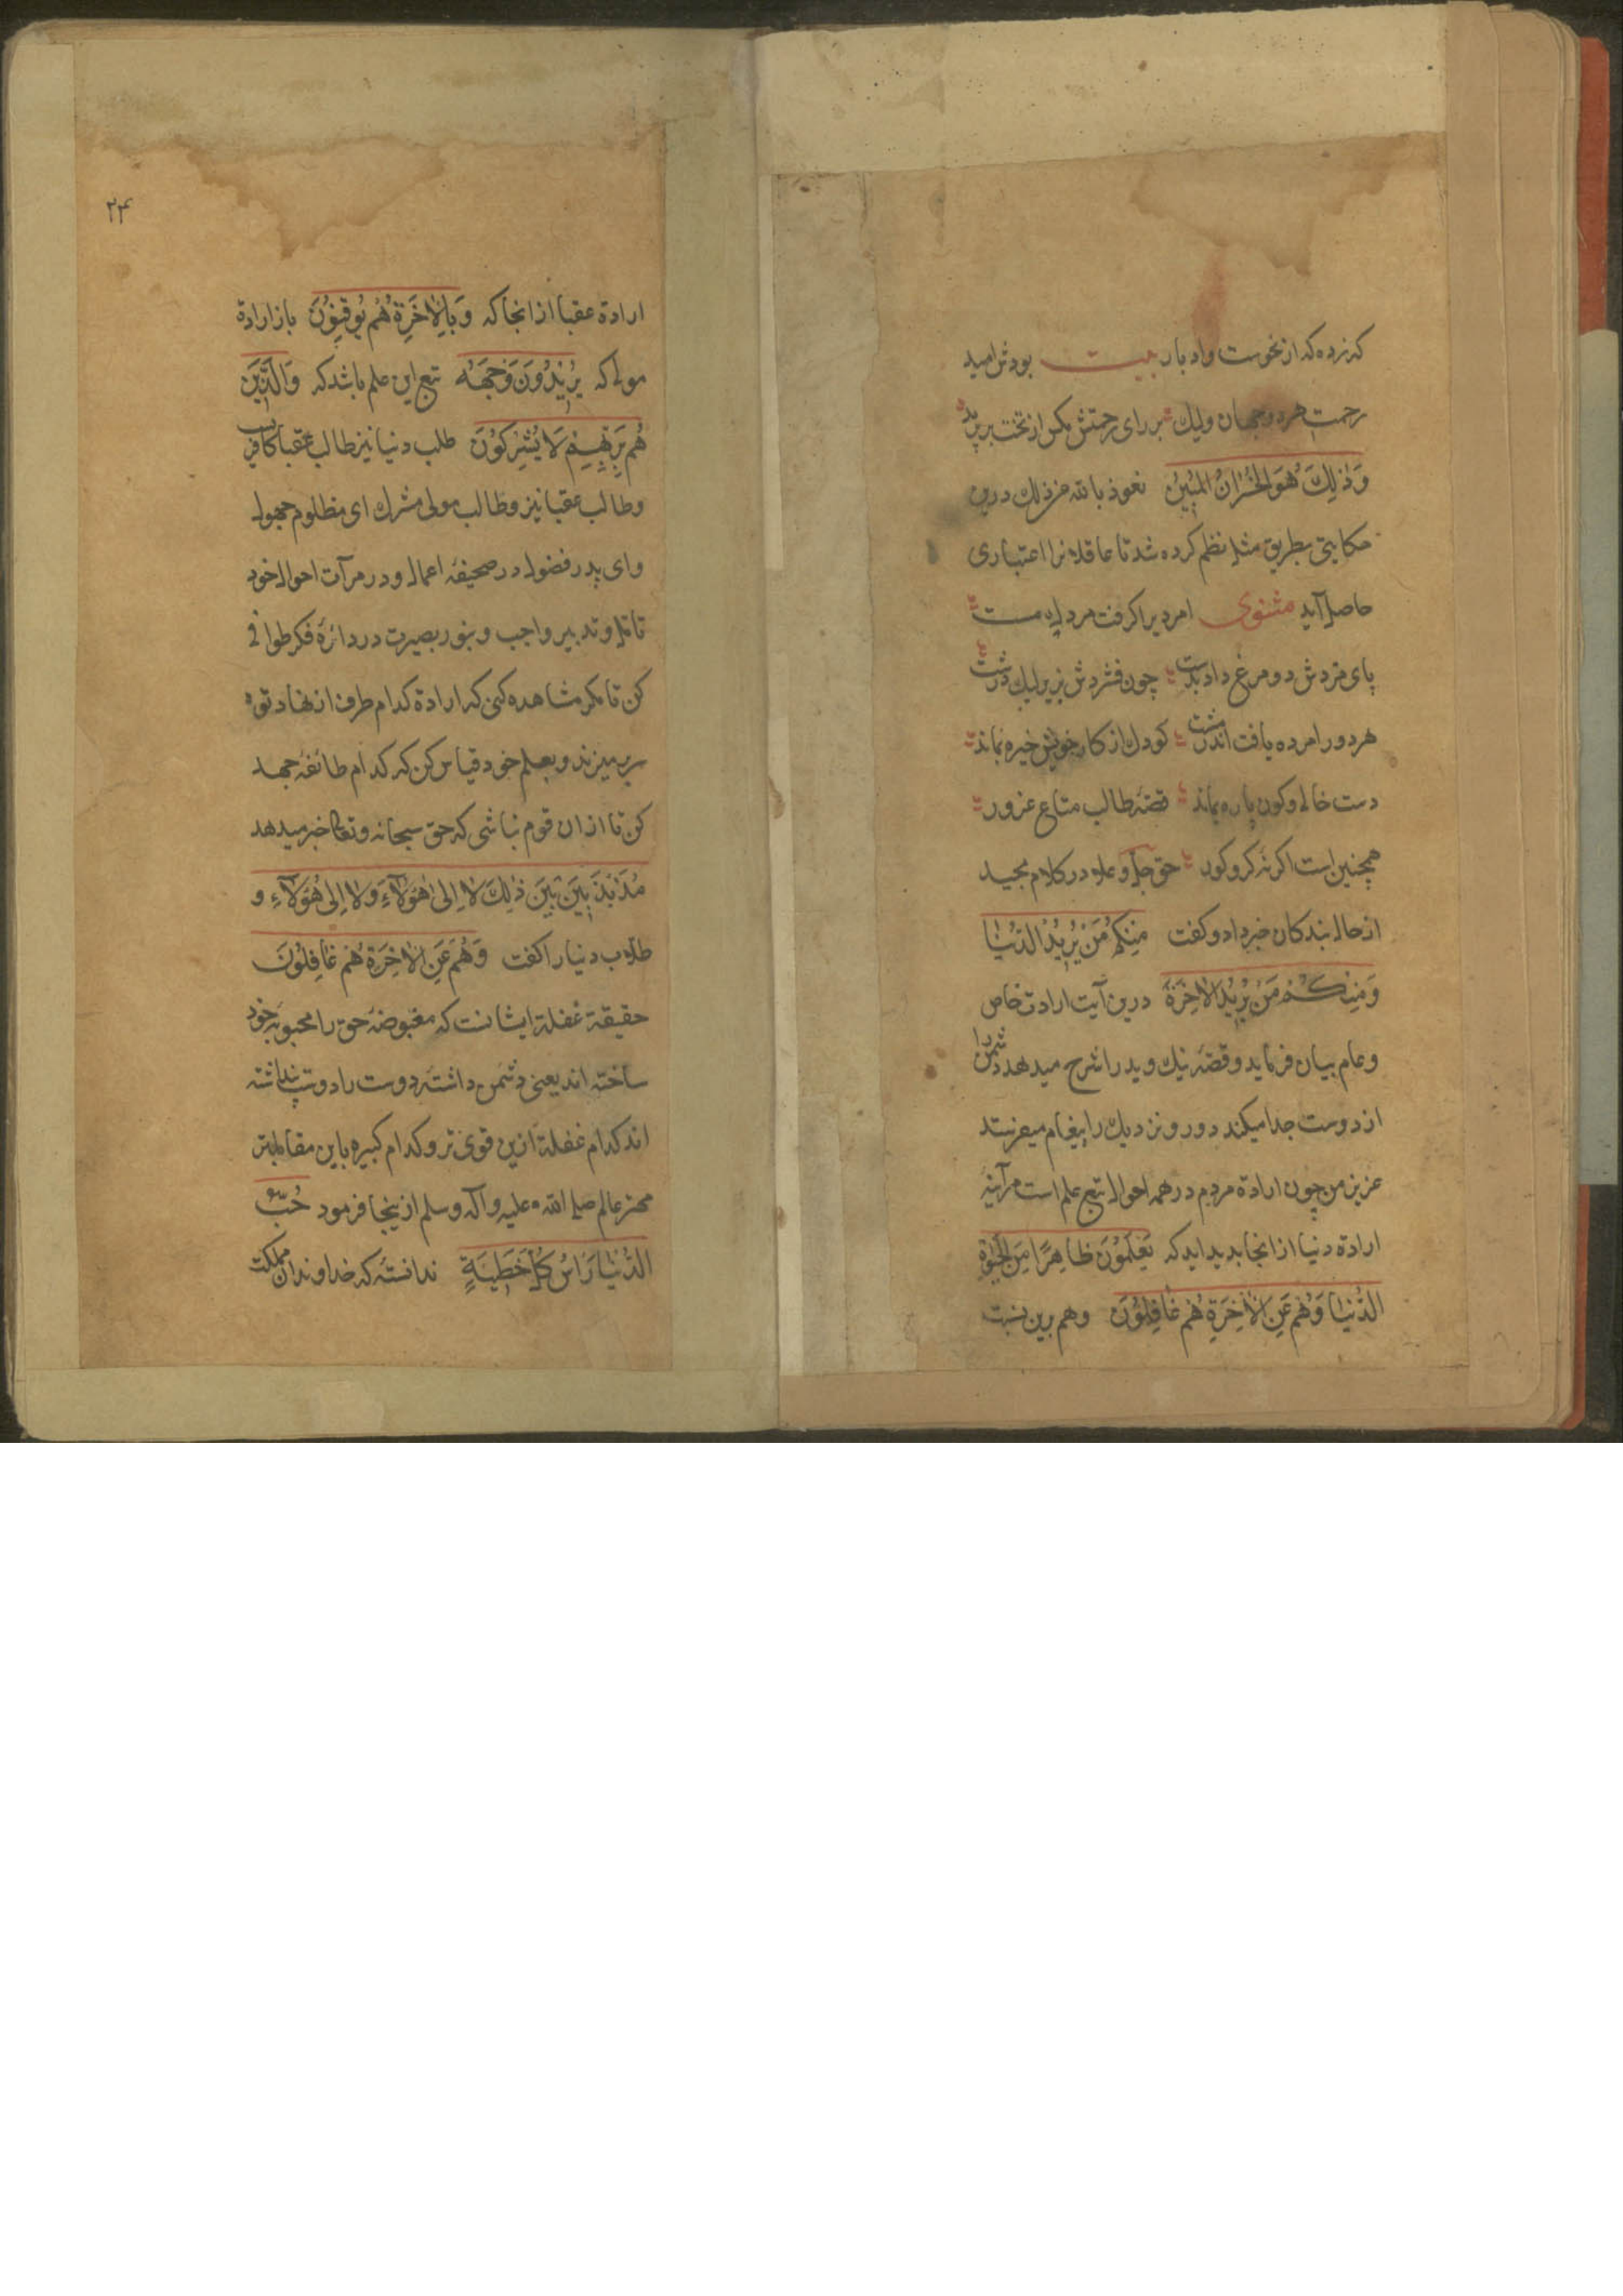 که نزده که از نحوست و ادبار بیت بودش امید
رحمت هر دو جهان ولیک برای رحمتش مکس از تخت برید
وَذٰلِكَ هُوَ الخُسْرانُ المُبِيْنُ نعوذ بالله من ذلک درین
حکایتی بطریق مثل نظم کرده شد تا عاقلانرا اعتباری
حاصل آید مثنوی امردیرا کرفت مردی مست
پای مزدش دو مرغ داد بدست چون فشردش بزیر لیک درشت
هر دو را مرده یافت اندر مشت کودک از کار خویش خیره بماند
دست خالی و کون پاره بماند قصّه طالب متاع غرور
همچنین است اکر نه کر و کور حق جل و علا در کلام مجید
از حال بندکان خبر داد و کفت مِنْكُمْ مَنْ يُرِيْدُ الدُّنْيَا
وَمِنْكُمْ مَنْ يُرِيْدُ الاٰخِرَةَ درین آیت ارادت خاص
و عام بیان فرماید و قصّه نیک و بد را شرح میدهد دشمن را
از دوست جدا میکند دور و نزدیک را پیغام میفرستد
عزیز من چون ارادة مردم در همه احوال تبع علم است هرآینه
ارادة دنیا از انجا بدید اید که يَعْلَمُوْنَ ظَاهِرًا مِنَ الحَيٰوةِ
الدُّنْيَا وَهُمْ عَنِ الاٰخِرَةِ هُمْ غَافِلُوْنَ و هم برین نسبت
۲۴
ارادة عقبا از انجا که وَبِالاٰخِرَةِ هُمْ يُوْقِنُوْنَ باز ارادة
مولی که يُرِيْدُوْنَ وَجْهَهُ تبع این علم باشد که وَالَّذِيْنَ
هُمْ بِرَبِّهِمْ لَا يُشْرِكُوْنَ طلب دنیا نیز طالب عقبا کافر
و طالب عقبا نیز و طالب مولی مشرک ای مظلوم جهول
و ای پدر فضول در صحیفه اعمال و در مرآت احوال خود
تامل و تدبیر واجب و بنور بصیرت در دائرة فکر طوافی
کن تا مکر مشاهده کنی که ارادة کدام طرف از نهاد تو
سر میزند و بعلم خود قیاس کن که کدام طائفه جهد
کن تا از ان قوم نباشی که حق سبحانه و تعالی خبر میدهد
مُذَبْذَبِيْنَ بَيْنَ ذٰلِكَ لا اِلىٰ هٰؤُلآءِ وَلا اِلىٰ هٰؤُلآءِ و
طلاب دنیا را کفت وَهُمْ عَنِ الاٰخِرَةِ هُمْ غَافِلُوْنَ
حقیقة غفلة ایشانست که مغبوضه حق را محبوبه خود
ساخته اند یعنی دشمن داشته دوست را دوست پنداشته
اند کدام غفلة ازین قوی تر و کدام کبیره باین مقابلتر
مخبر عالم صلی الله علیه و آله و سلم ازینجا فرمود حُبُّ
الدُّنْيَا رَاسُ كُلِّ خَطِيْئَةٍ ندانسته که خداوندان مملکت